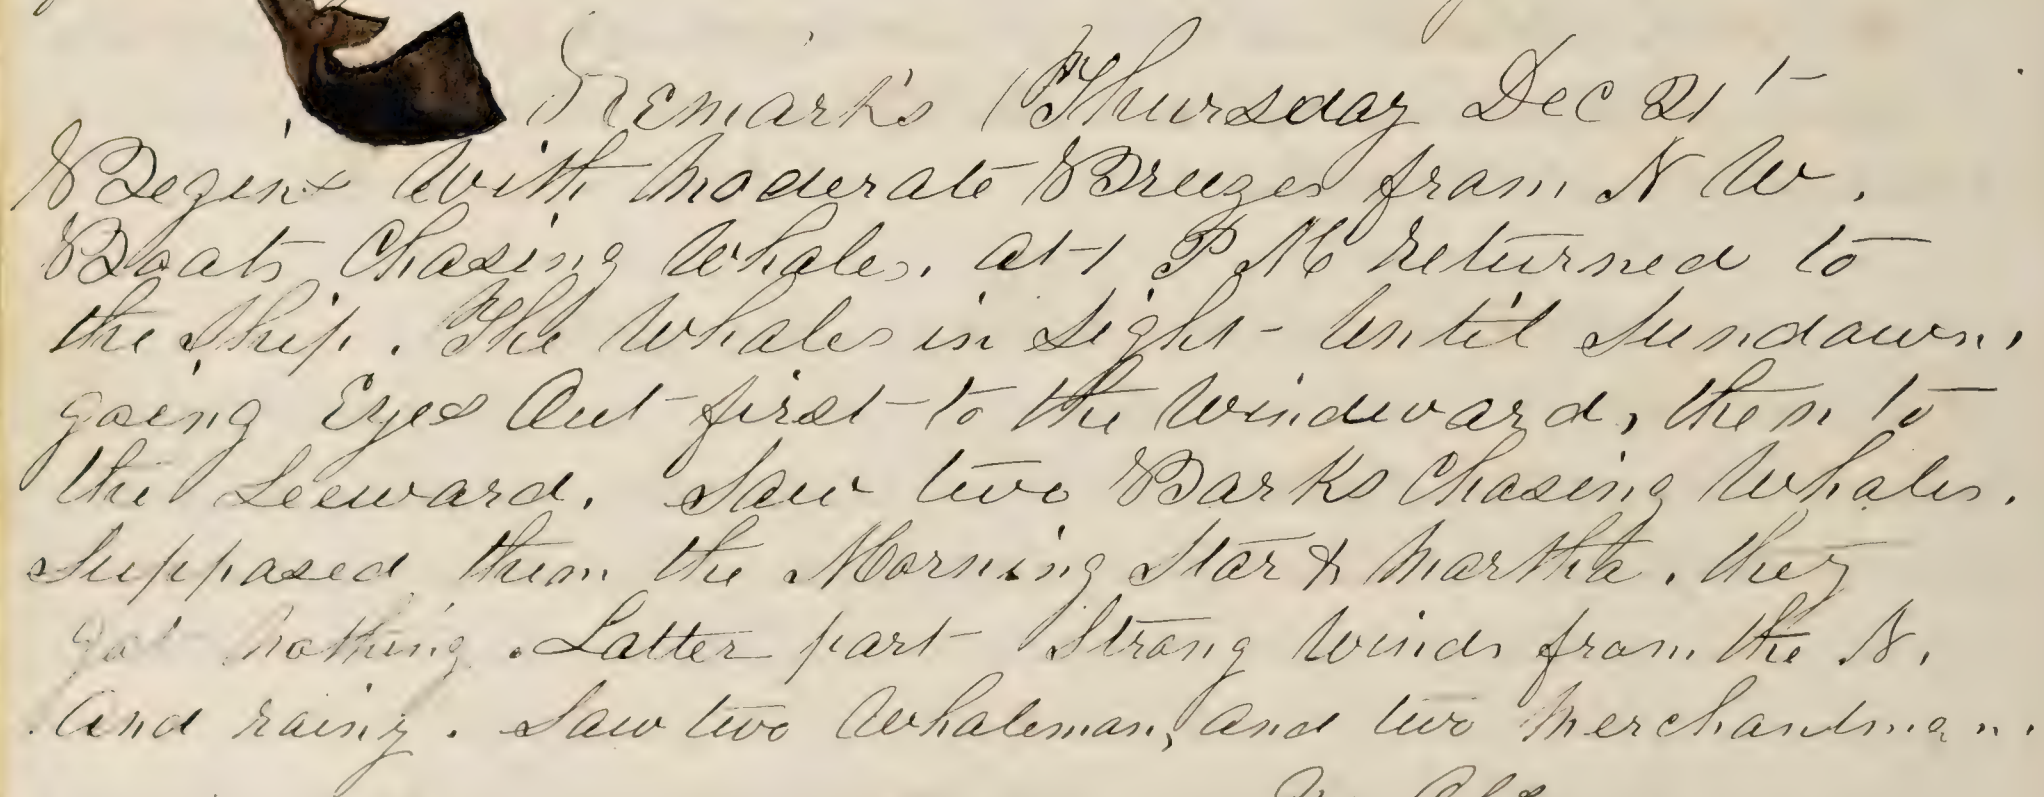 Remarks Thursday Dec 21st
Begins With Moderate Breezes from N W.
Boats Chasing Whales. at 1 P M returned to
the Ship. The Whales in Sight Until Sundown,
going Eyes Out first to the Windward, then to
the Leeward. Saw two Barks Chasing Whales.
Supposed them the Morning Star & Martha. they
got nothing. Latter part Strong Winds from the N.
And rainy. Saw two Whaleman, And two Merchantman.